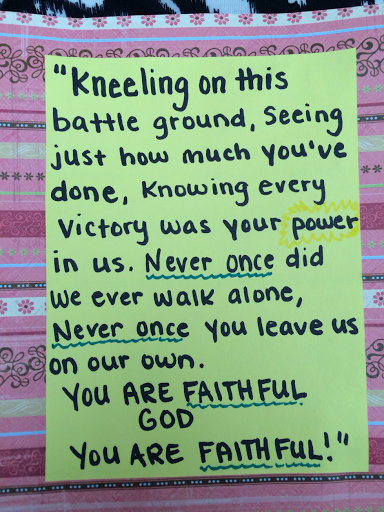 "Kneeling on this
battle ground, Seeing
just how much you've
done, Knowing every
Victory was your power
in us. Never once did
we ever walk alone,
Never once you leave us
on our own.
YOU ARE FAITHFUL
GOD
YOU ARE FAITHFUL!"